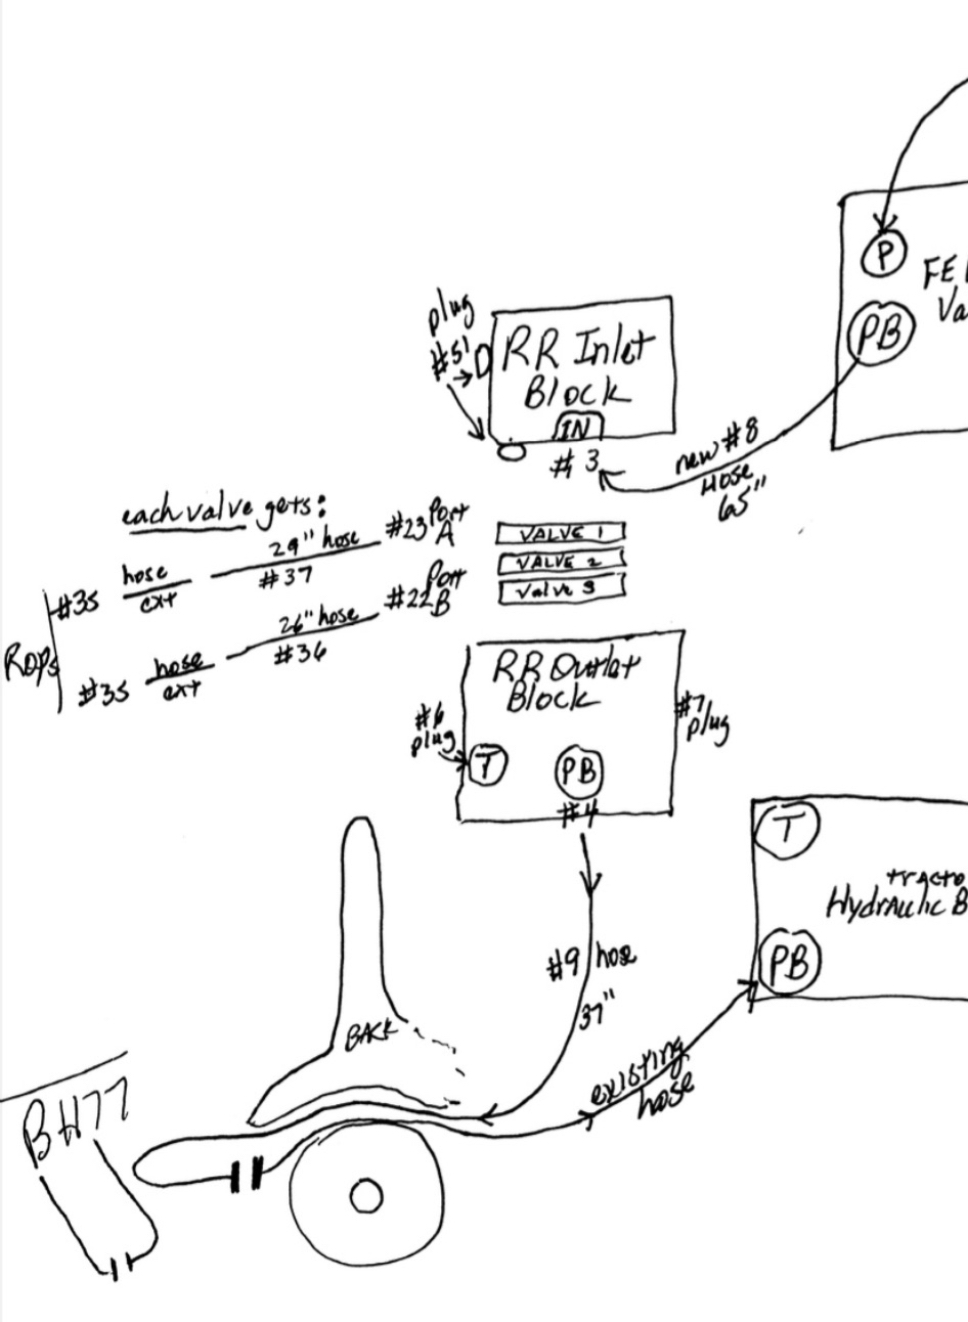 P
FEL
Va
PB
plug
#51
RR Inlet
Block
IN
#3
new #8
Hose
65"
each valve gets:
#35 hose
ext
29" hose
#37
#23 Port
A
#35 hose
ext
26" hose
#36
#22 Port
B
ROPS
VALVE 1
VALVE 2
Valve 3
RR Outlet
Block
#6
plug
T
PB
#4
#7
plug
T
tracto
Hydraulic B
PB
#9 hose
37"
BACK
existing
hose
BH77